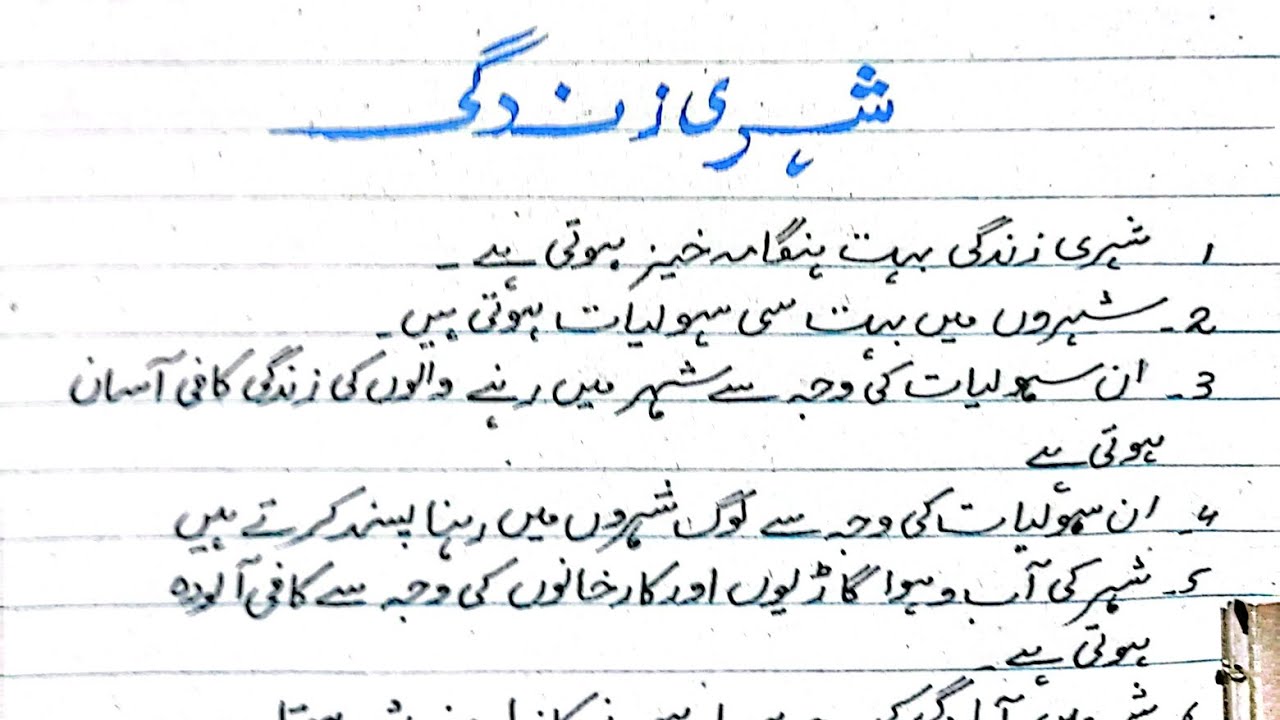 شہری زندگی
1 شہری زندگی بہت ہنگامہ خیز ہوتی ہے۔
2۔ شہروں میں بہت سی سہولیات ہوتی ہیں۔
3۔ ان سہولیات کی وجہ سے شہر میں رہنے والوں کی زندگی کافی آسان
ہوتی ہے
4۔ ان سہولیات کی وجہ سے لوگ شہروں میں رہنا پسند کرتے ہیں
5۔ شہر کی آب و ہوا گاڑیوں اور کارخانوں کی وجہ سے کافی آلودہ
ہوتی ہے۔